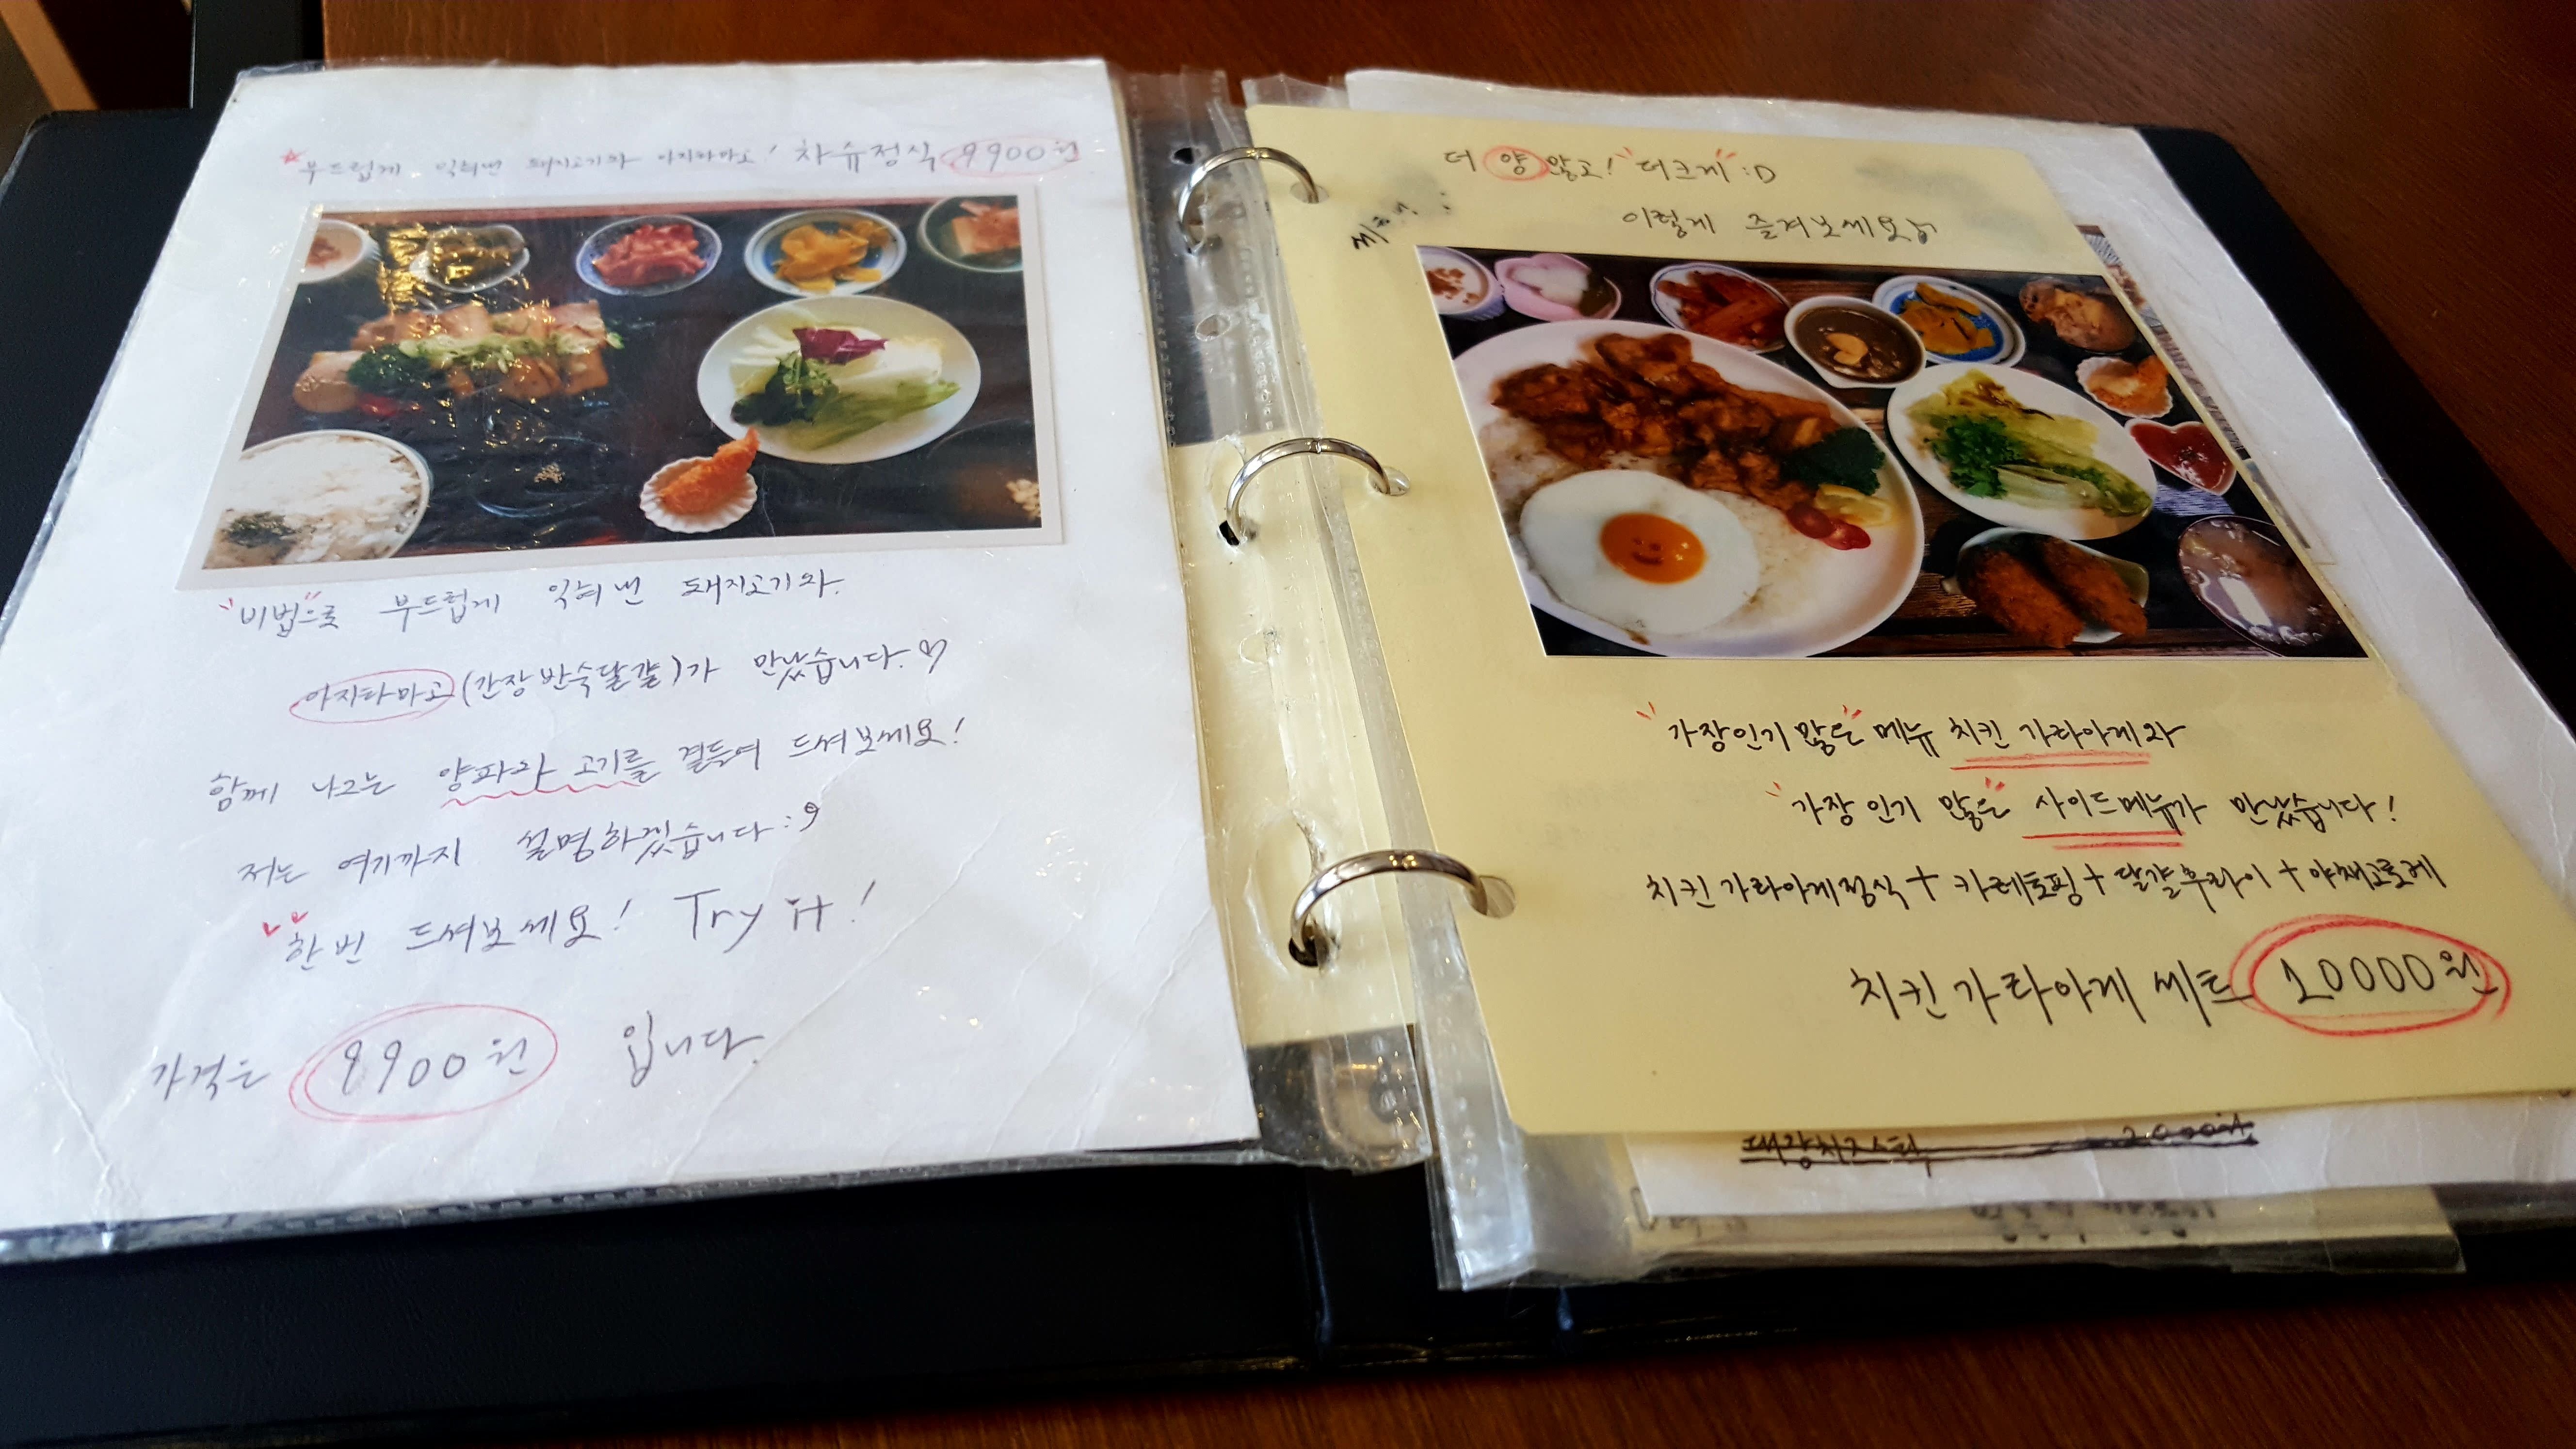 부드럽게 익혀낸 돼지고기와 아지타마고! 차슈정식 9900원
"비법"으로 부드럽게 익혀낸 돼지고기와
아지타마고 (간장반숙달걀)가 만났습니다.♡
함께 나오는 양파와 고기를 곁들여 드셔보세요!
저는 여기까지 설명하겠습니다 :9
한번 드셔보세요! Try it!
가격은 9900원 입니다.
더 양 많고! "더크게" :D
이렇게 즐겨보세요♪
"가장인기 많은" 메뉴 치킨 가라아게와
"가장 인기 많은" 사이드메뉴가 만났습니다!
치킨가라아게정식 + 카레토핑 + 달걀후라이 + 야채고로케
치킨가라아게 세트 10000원